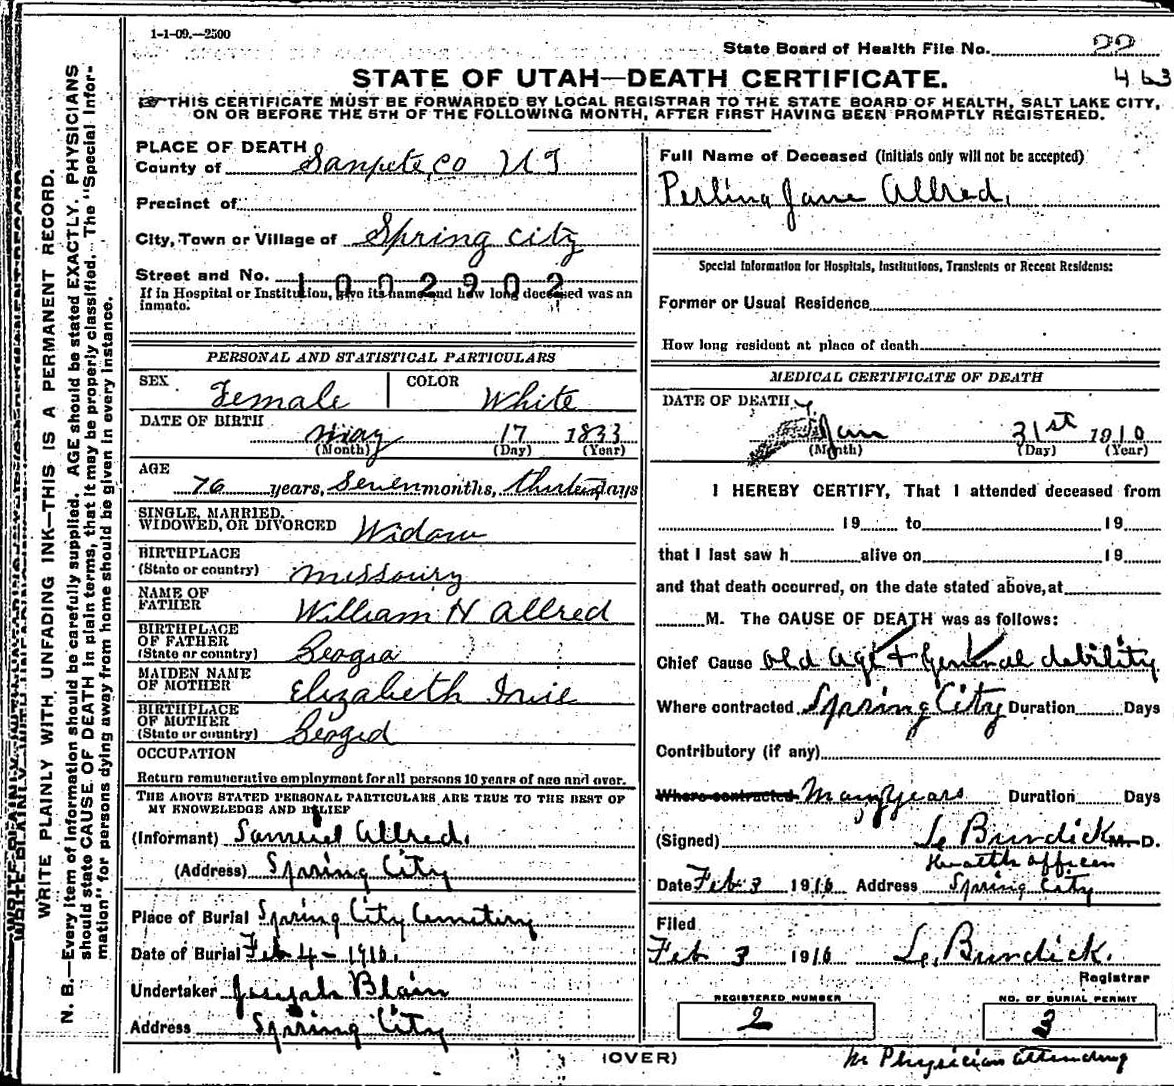 1-1-09.—2500
State Board of Health File No. 22
STATE OF UTAH—DEATH CERTIFICATE. 463
THIS CERTIFICATE MUST BE FORWARDED BY LOCAL REGISTRAR TO THE STATE BOARD OF HEALTH, SALT LAKE CITY,
ON OR BEFORE THE 5TH OF THE FOLLOWING MONTH, AFTER FIRST HAVING BEEN PROMPTLY REGISTERED.
WRITE PLAINLY WITH UNFADING INK—THIS IS A PERMANENT RECORD.
N. B.—Every item of information should be carefully supplied. AGE should be stated EXACTLY. PHYSICIANS
should state CAUSE OF DEATH in plain terms, that it may be properly classified. The "Special Infor-
mation" for persons dying away from home should be given in every instance.
PLACE OF DEATH
County of Sanpete, co UT
Precinct of
City, Town or Village of Spring city
Street and No. 1002902
If in Hospital or Institution, give its name and how long deceased was an
inmate.
PERSONAL AND STATISTICAL PARTICULARS
SEX Female COLOR White
DATE OF BIRTH may 17 1833
(Month) (Day) (Year)
AGE
76 years, Seven months, thirteen days
SINGLE, MARRIED,
WIDOWED, OR DIVORCED Widow
BIRTHPLACE
(State or country) missoury
NAME OF
FATHER William H allred
BIRTHPLACE
OF FATHER
(State or country) Geogia
MAIDEN NAME
OF MOTHER Elizabeth Ivie
BIRTHPLACE
OF MOTHER
(State or country)
OCCUPATION
Return remunerative employment for all persons 10 years of age and over.
THE ABOVE STATED PERSONAL PARTICULARS ARE TRUE TO THE BEST OF
MY KNOWLEDGE AND BELIEF
(Informant) Samuel Allred.
(Address) Spring City
Place of Burial Spring City Cemetery
Date of Burial Feb 4 - 1910.
Undertaker Joseph Blain
Address Spring City
Full Name of Deceased (Initials only will not be accepted)
Perlina Jane Allred.
Special Information for Hospitals, Institutions, Transients or Recent Residents:
Former or Usual Residence
How long resident at place of death
MEDICAL CERTIFICATE OF DEATH
DATE OF DEATH
Jan 31st 1910
(Month) (Day) (Year)
I HEREBY CERTIFY, That I attended deceased from
19 to 19
that I last saw h alive on 19
and that death occurred, on the date stated above, at
M. The CAUSE OF DEATH was as follows:
Chief Cause old age + General debility
Where contracted Spring City Duration Days
Contributory (if any)
Where contracted Many years Duration Days
(Signed) Le Burdick M. D.
Health officer
Date Feb 3 1910 Address Spring City
Filed
Feb 3 1910 Le. Burdick.
Registrar
REGISTERED NUMBER
2
NO. OF BURIAL PERMIT
(OVER)
Physician attending